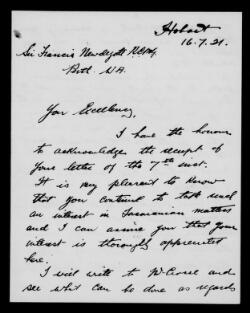 Hobart
16.7.21.
Sir Francis Newdegate KCMG
Perth W.A.
Your Excellency,
I have the honour
to acknowledge the receipt of
your letter of the 7th inst.
It is very pleasant to know
that you continued to take such
an interest in Tasmanian matters
and I can assure you that your
interest is thoroughly appreciated
here.
I will write to
and
see what can be done as regards